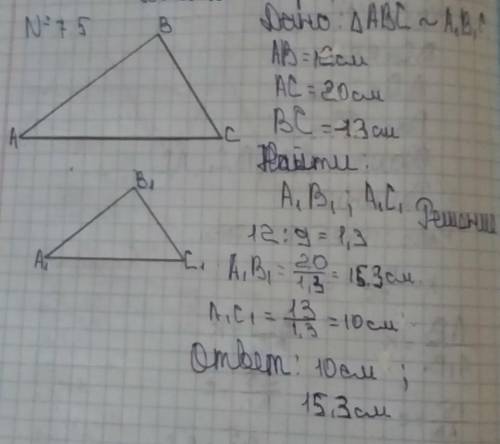 №75
B
A
C
B₁
A₁
C₁
Дано: △ABC ~ A₁B₁C
AB=12см
AC=20см
BC=13см
Найти:
A₁B₁; A₁C₁
Решение
12:9=1,3
A₁B₁=20/1,3=15,3см
A₁C₁=13/1,3=10см
Ответ: 10см;
15,3см